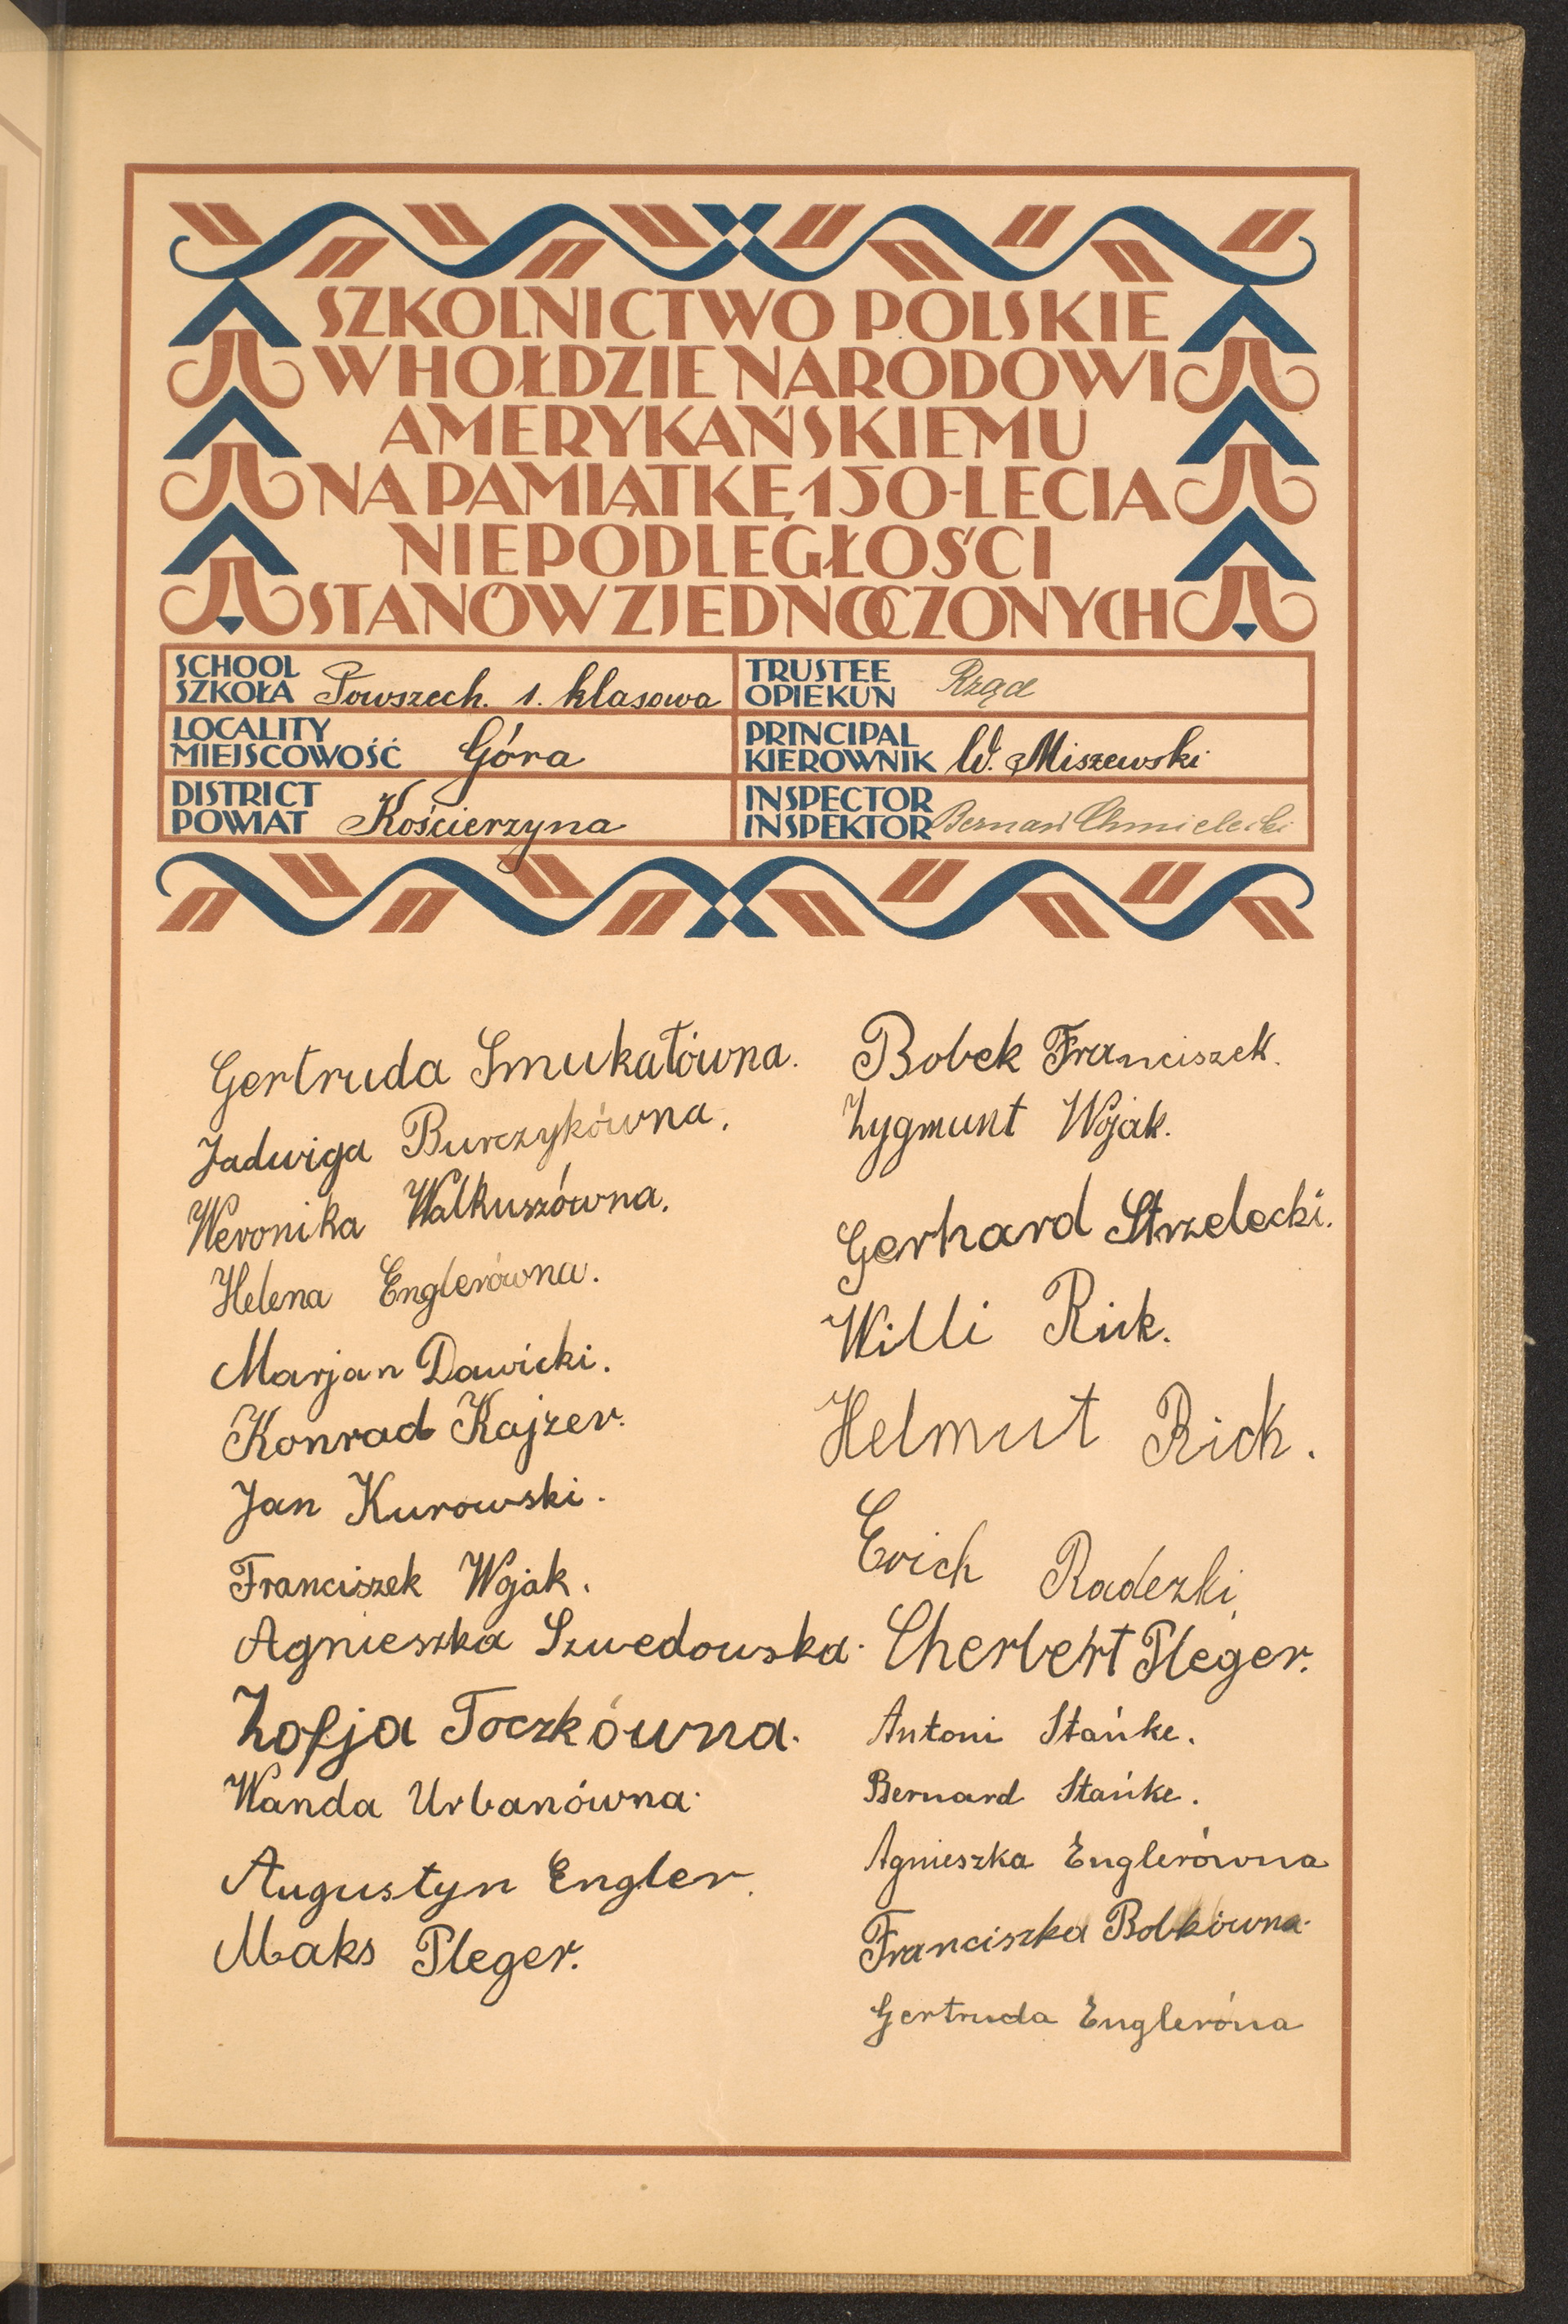 SZKOLNICTWO POLSKIE
W HOŁDZIE NARODOWI
AMERYKAŃSKIEMU
NA PAMIĄTKĘ 150-LECIA
NIEPODLEGŁOŚCI
STANÓW ZJEDNOCZONYCH
SCHOOL
SZKOŁA Powszech. 1. klasowa
TRUSTEE
OPIEKUN Rząd
LOCALITY
MIEJSCOWOŚĆ Góra
PRINCIPAL
KIEROWNIK W. Miszewski
DISTRICT
POWIAT Kościerzyna
INSPECTOR
INSPEKTOR Chmielecki
Gertruda Smukałówna.
Jadwiga Burczykówna.
Weronika Walkuszówna.
Helena Englerówna.
Marjan Dawicki.
Konrad Kajzer.
Jan Kurowski.
Franciszek Wojak.
Agnieszka Szwedowska.
Zofja Toczkówna.
Wanda Urbanówna.
Augustyn Engler.
Maks Pleger.
Bobek Franciszek.
Zygmunt Wojak.
Gerhard Strzelecki.
Willi Rick.
Helmut Rick.
Erich Radezki.
Cherbert Pleger.
Antoni Stańke.
Bernard Stańke.
Agnieszka Englerówna
Franciszka Bobkówna.
Gertruda Engleróna